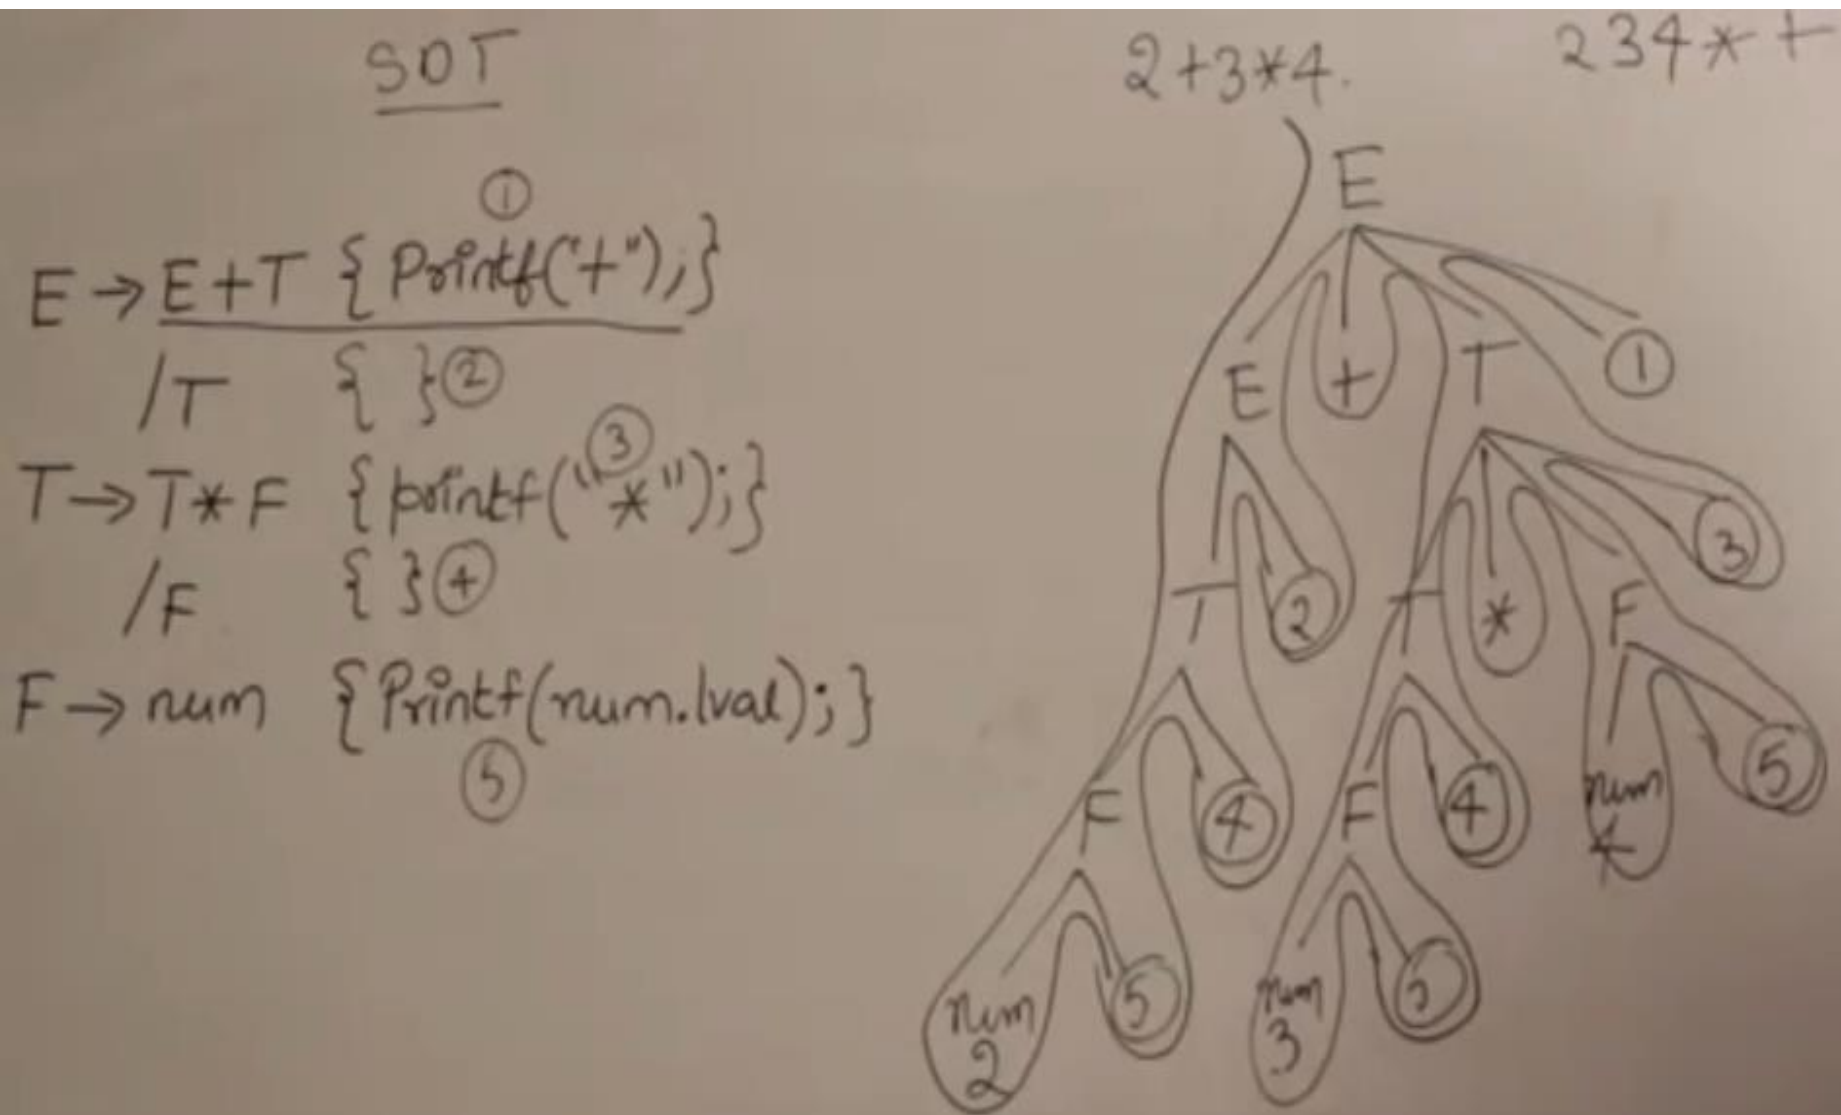 SDT
①
E → E+T { Printf("+"); }
/T { } ②
③
T → T*F { printf("*"); }
/F { } ④
F → num { Printf(num.lval); }
⑤
2+3*4.
234*+
E
E + T ①
T ② T * F ③
F ④ F ④ num 4 ⑤
num 2 ⑤ num 3